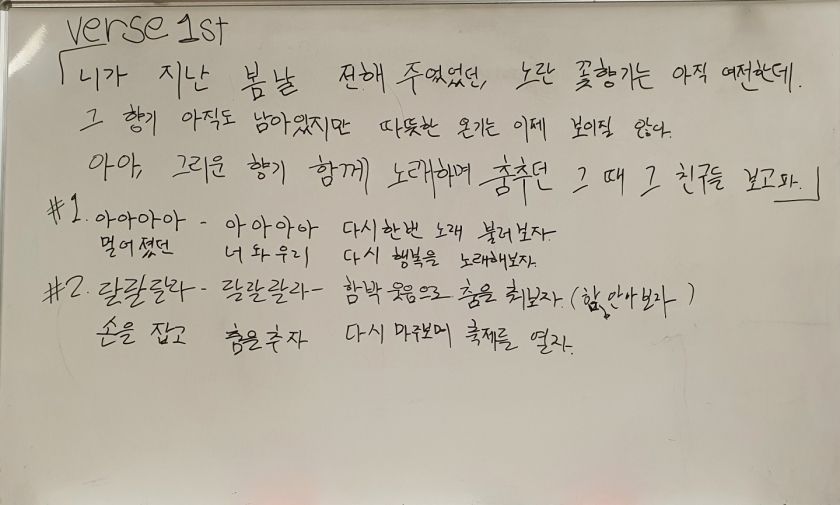 verse 1st
니가 지난 봄날 전해 주었었던, 노란 꽃향기는 아직 여전한데.
그 향기 아직도 남아있지만 따뜻한 온기는 이제 보이질 않다.
아아, 그리운 향기 함께 노래하며 춤추던 그 때 그 친구들 보고파.
#1. 아아아아 - 아아아아 다시한번 노래 불러보자.
멀어졌던 너와우리 다시 행복을 노래해보자.
#2. 랄랄라 - 랄랄랄라 - 함박웃음으로 춤을 춰보자. ( 안아보라 )
손을 잡고 춤을추자 다시 마주보며 축제를 열자.